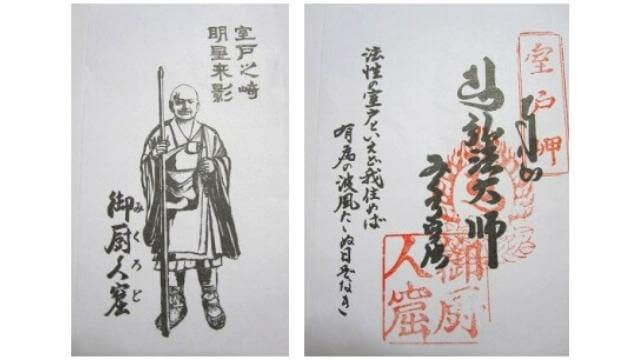 室戸之崎
明星来影
御厨人窟
みくろど
室戸岬
弘法大師
御厨人窟
法性の室戸といえど我住めば
有為の波風たゝぬ日ぞなき